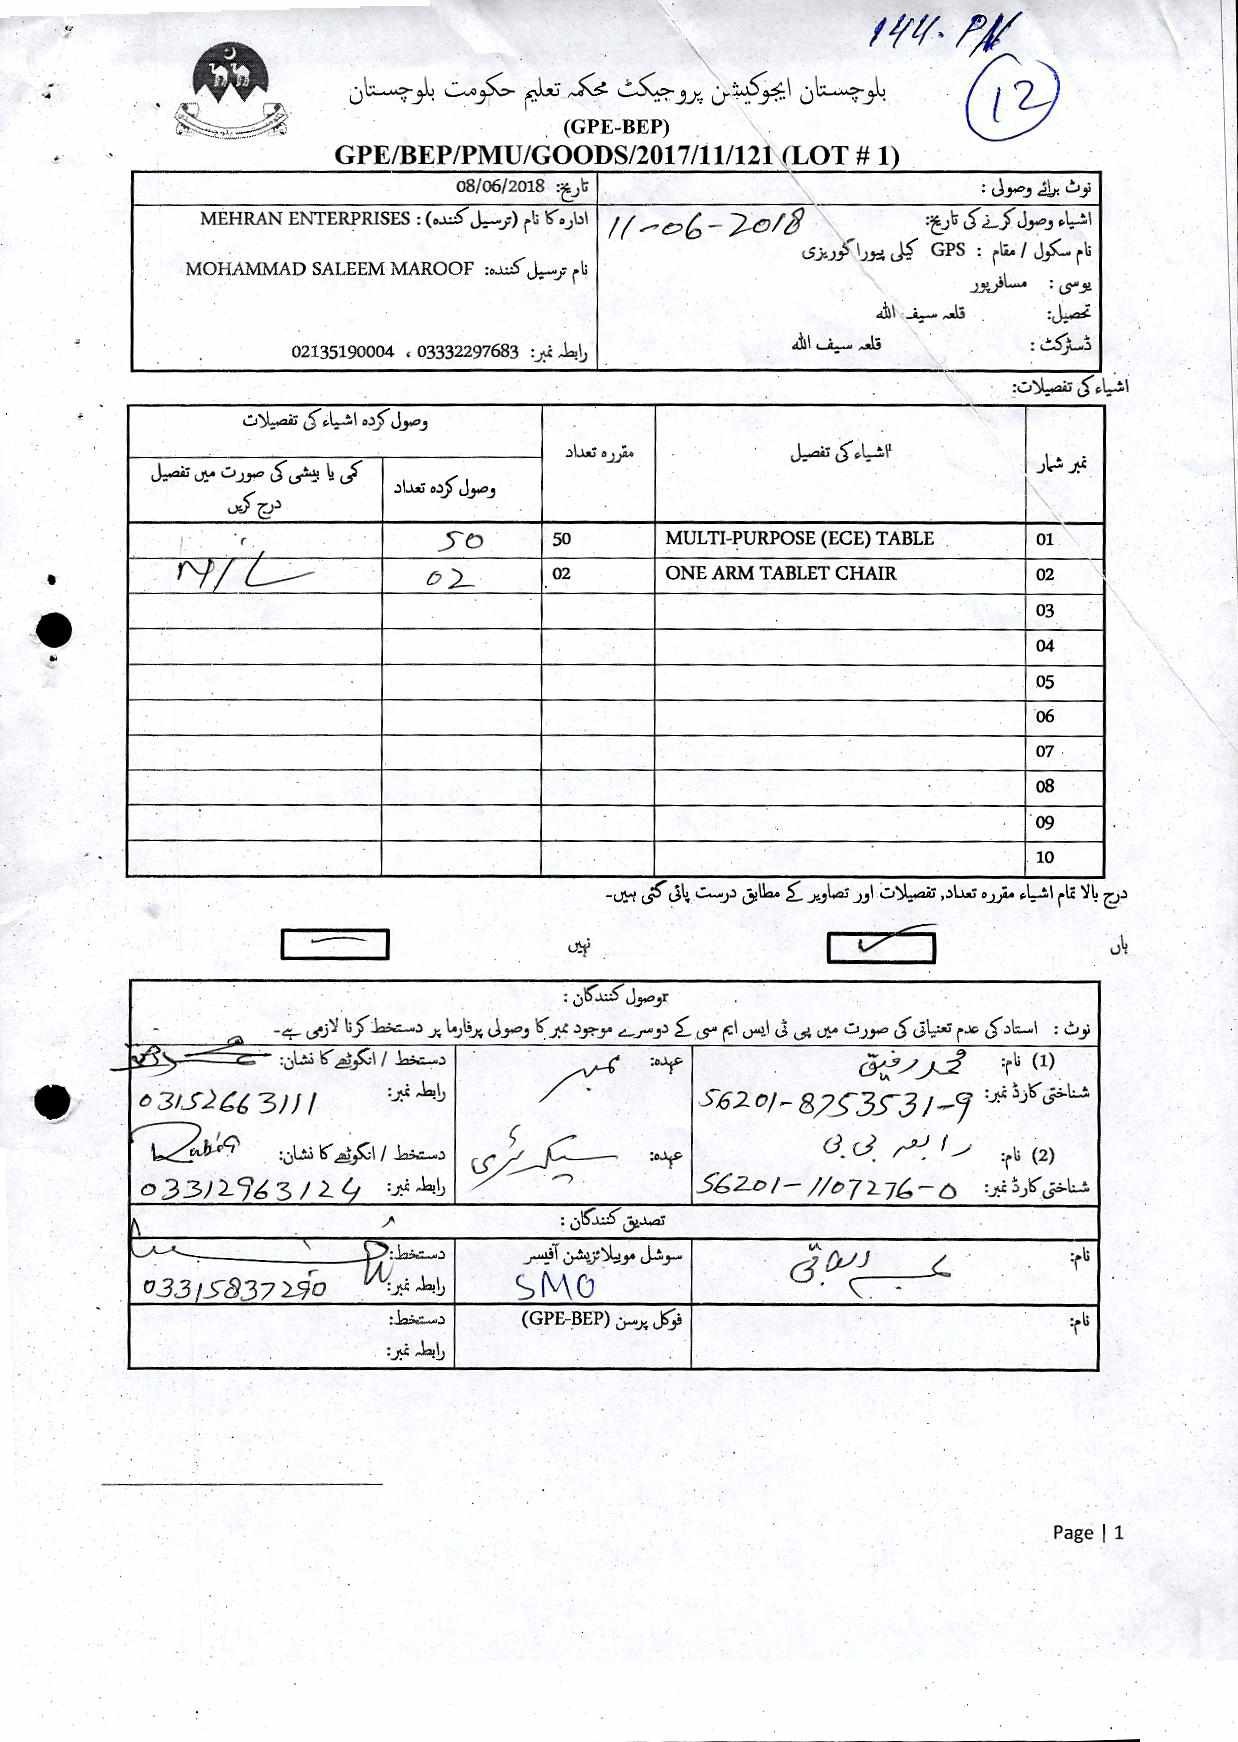 144-PN
12
بلوچستان ایجوکیشن پروجیکٹ محکمہ تعلیم حکومت بلوچستان
(GPE-BEP)
GPE/BEP/PMU/GOODS/2017/11/121 (LOT # 1)
نوٹ برائے وصولی :
تاریخ: 08/06/2018
اشیاء وصول کرنے کی تاریخ: 11-06-2018
ادارہ کا نام (ترسیل کنندہ) : MEHRAN ENTERPRISES
نام سکول / مقام : GPS کیلی پیورا گوریزی
نام ترسیل کنندہ: MOHAMMAD SALEEM MAROOF
یوسی : مسافرپور
تحصیل: قلعہ سیف اللہ
ڈسٹرکٹ : قلعہ سیف اللہ
رابطہ نمبر: 03332297683 ، 02135190004
اشیاء کی تفصیلات:
نمبر شمار اشیاء کی تفصیل مقررہ تعداد وصول کردہ اشیاء کی تفصیلات
وصول کردہ تعداد کمی یا بیشی کی صورت میں تفصیل درج کریں
01 MULTI-PURPOSE (ECE) TABLE 50 50
02 ONE ARM TABLET CHAIR 02 02 NIL
03
04
05
06
07
08
09
10
درج بالا تمام اشیاء مقررہ تعداد, تفصیلات اور تصاویر کے مطابق درست پائی گئی ہیں۔
ہاں ✓ نہیں —
وصول کنندگان :
نوٹ : استاد کی عدم تعیناتی کی صورت میں پی ٹی ایس ایم سی کے دوسرے موجود ممبر کا وصولی پرفارما پر دستخط کرنا لازمی ہے۔
(1) نام: محمد رفیق عہدہ: ممبر دستخط / انگوٹھے کا نشان:
شناختی کارڈ نمبر: 56201-8753531-9 رابطہ نمبر: 03152663111
(2) نام: رابعہ بی بی عہدہ: سیکرٹری دستخط / انگوٹھے کا نشان: Rabia
شناختی کارڈ نمبر: 56201-1107276-0 رابطہ نمبر: 03312963124
تصدیق کنندگان :
نام: سوشل موبیلائزیشن آفیسر دستخط:
SMO رابطہ نمبر: 03315837290
نام: فوکل پرسن (GPE-BEP) دستخط:
رابطہ نمبر:
Page | 1